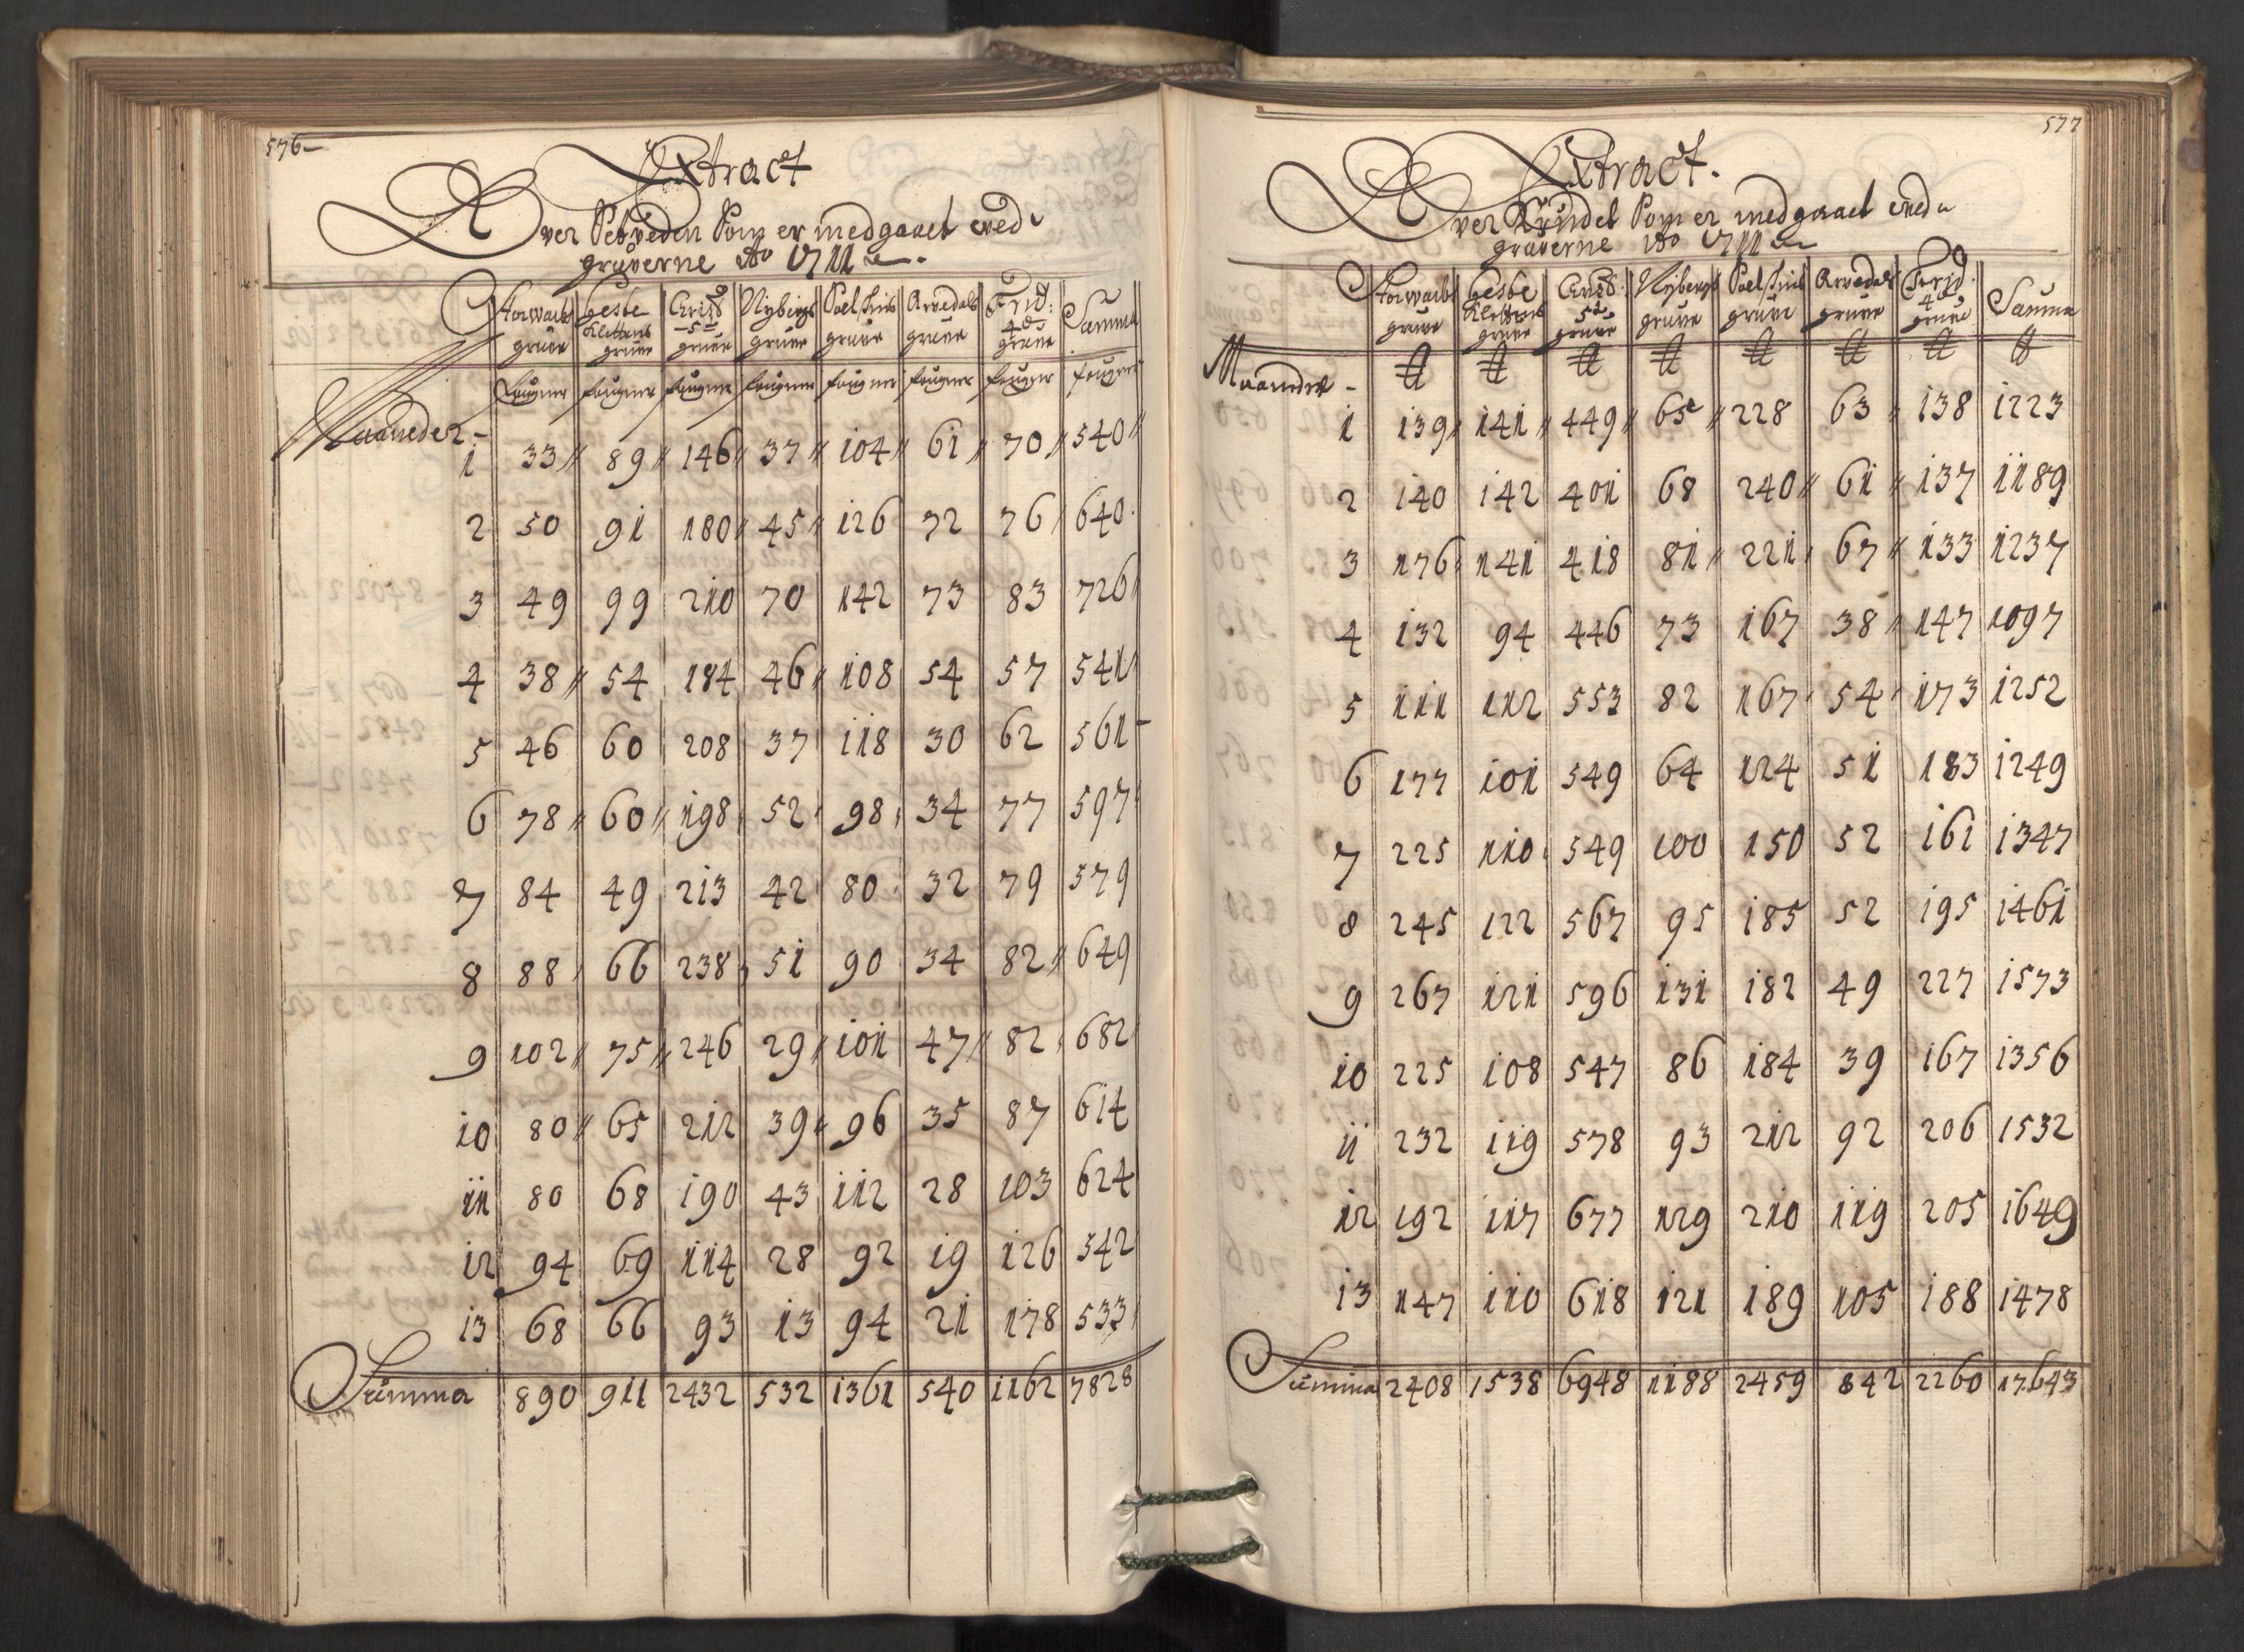 576
Extract
Over Setveden Som er medgaaet ved
gruverne Ao 1711
Storwarts gruve Gesbe Klettens gruve Crist 5te gruve Nybergs gruve Poel gruve Arvedals gruve Frid: 4des gruve Summa
faugner faugner faugner faugner faugner faugner faugner faugner
Maaneder
1 33 89 146 37 104 61 70 540
2 50 91 180 45 126 72 76 640
3 49 99 210 70 142 73 83 726
4 38 54 184 46 108 54 57 541
5 46 60 208 37 118 30 62 561
6 78 60 198 52 98 34 77 597
7 84 49 213 42 80 32 79 579
8 88 66 238 51 90 34 82 649
9 102 75 246 29 101 47 82 682
10 80 65 212 39 96 35 87 614
11 80 68 190 43 112 28 103 624
12 94 69 114 28 92 19 126 542
13 68 66 93 13 94 21 178 533
Summa 890 911 2432 532 1361 540 1162 7828
577
Extract.
Over Krudet Som er medgaaet ved
gruverne Ao 1711
Storwarts gruve Gesbe Klettens gruve Crist: 5te gruve Nybergs gruve Poel gruve Arvedals gruve Frid: 4des gruve Summa
Maaneder ℔ ℔ ℔ ℔ ℔ ℔ ℔ ℔
1 139 141 449 65 228 63 138 1223
2 140 142 401 68 240 61 137 1189
3 176 141 418 81 221 67 133 1237
4 132 94 446 73 167 38 147 1097
5 111 112 553 82 167 54 173 1252
6 177 101 549 64 124 51 183 1249
7 225 110 549 100 150 52 161 1347
8 245 122 567 95 185 52 195 1461
9 267 121 596 131 182 49 227 1573
10 225 108 547 86 184 39 167 1356
11 232 119 578 93 212 92 206 1532
12 192 117 677 129 210 119 205 1649
13 147 110 618 121 189 105 188 1478
Summa 2408 1538 6948 1188 2459 842 2260 17643